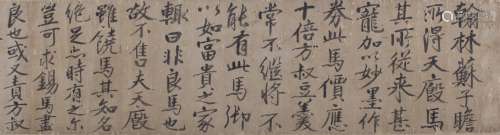 翰林蘇子瞻
所得天廄馬
其所從來甚
寵加以妙墨作
券此馬價應
十倍方叔豆羹
常不繼將不
能有此馬御
以如富貴之家
輒曰非良馬也
故不售夫天廄
雖饒馬其知名
絕足亦時有之尔
豈可求錫馬盡
良也或又責方叔